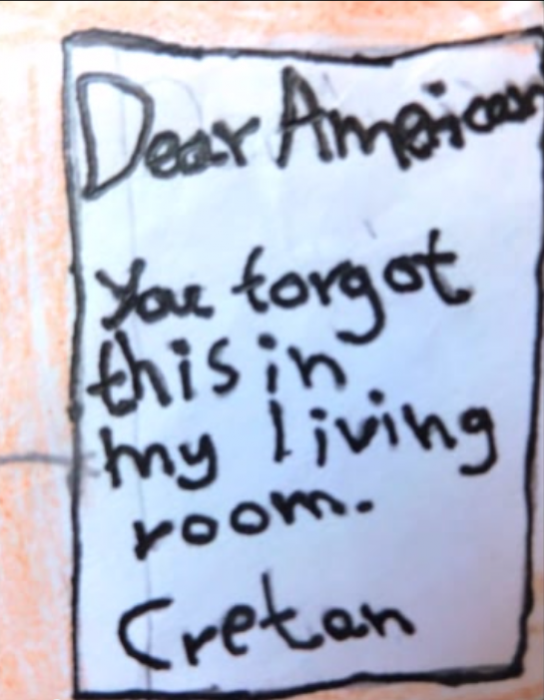 Dear American
You forgot
this in
my living
room.
Cretan